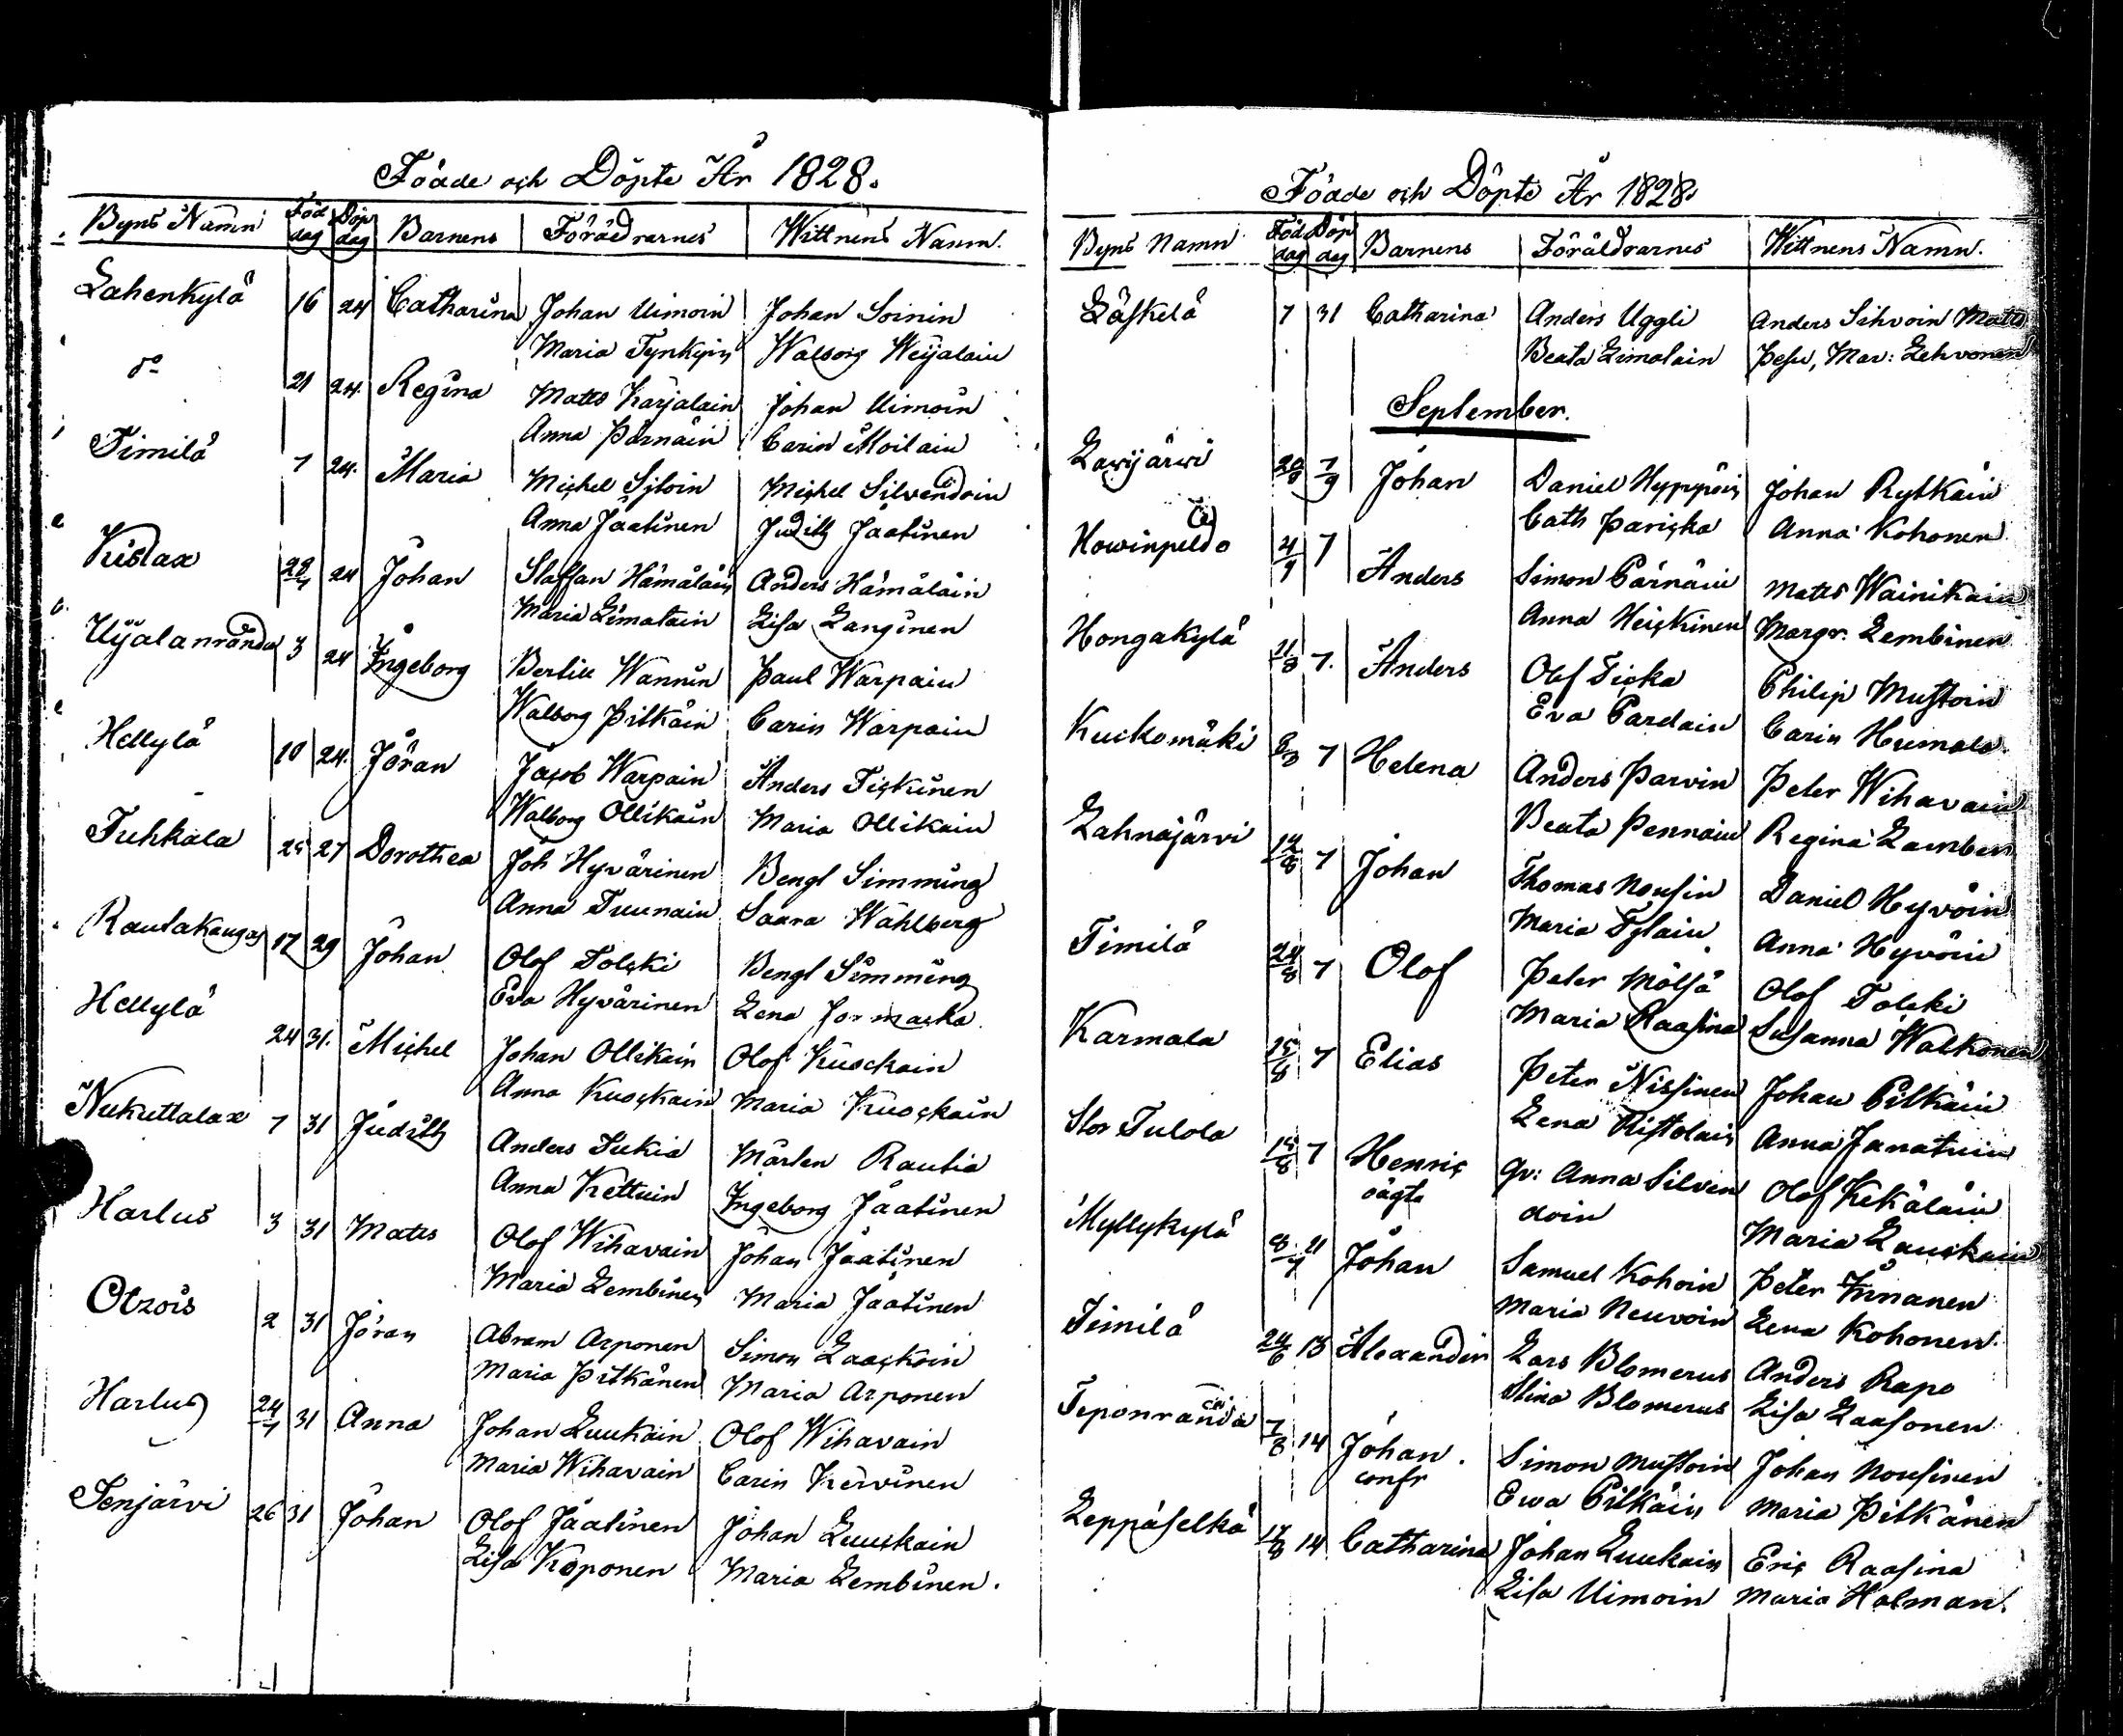 Födde och Döpte År 1828.
Byns Namn Föd dag Döp dag Barnens Föräldrarnes Wittnens Namn.
Lahenkylä 16 24 Catharina Johan Uimoin Johan Soinin
Maria Tynkyin Walborg Weijalain
do 21 24. Regina Matts Karjalain Johan Uimoin
Anna Pärnäin Carin Moilain
Timilä 7 24. Maria Michel Siloin Michel Silvendoin
Anna Jaatinen Judith Jaatinen
Kuslax 28/7 24 Johan Staffan Hämäläin Anders Hämäläin
Maria Limatain Lisa Langinen
Uijalanranda 3 24 Ingeborg Bertill Wannin Paul Warpain
Walborg Pitkäin Carin Warpain
Hellylä 10 24. Jöran Jacob Warpain Anders Tickinen
Walborg Ollikain Maria Ollikain
Tuhkala 25 27 Dorothea Joh Hyvärinen Bengt Simming
Anna Tuunain Saara Wahlberg
Rautakangas 17 29 Johan Olof Tolcki Bengt Simming
Eva Hyvärinen Lena Jormacka
Hellylä 24 31. Michel Johan Ollikain Olof Kuockain
Anna Kuockain Maria Kuockain
Nukuttalax 7 31 Judith Anders Sukia Mårten Rautia
Anna Kettuin Ingeborg Jaatinen
Harlus 3 31 Matts Olof Wihavain Johan Jäätinen
Maria Lembinen Maria Jäätinen
Otzois 2 31 Jöran Abram Arponen Simon Laackoin
Maria Pitkänen Maria Arponen
Harlus 24/7 31 Anna Johan Luukain Olof Wihavain
Maria Wihavain Carin Kervinen
Senjärvi 26 31 Johan Olof Jäätinen Johan Luuckain
Lisa Koponen Maria Lembinen.
Födde och Döpte År 1828
Byns Namn Föd dag Döp dag Barnens Föräldrarnes Wittnens Namn.
Läskelä 7 31 Catharina Anders Uggli Anders Sihvoin Matts
Beata Limatain Pesu, Mar: Lehvonen
September.
Lavijärvi 20/8 7/9 Johan Daniel Hyppöin Johan Rytkäin
Cath Paricka Anna Kohonen
Howinpeldo 4/7 7 Anders Simon Pärnäin Matts Wainikain
Anna Heickinen Margr. Lembinen
Hongakylä 21/8 7. Anders Olof Ticka Philip Mustoin
Eva Pardain Carin Humala
Kuckomäki 8/8 7 Helena Anders Parvin Peter Wihavain
Beata Pennain Regina Lamben
Lahnajärvi 12/8 7 Johan Thomas Nousin Daniel Hyvöin
Maria Tylain Anna Hyvöin
Timilä 24/8 7 Olof Peter Mölsä Olof Tolcki
Maria Raasina Susanna Walkonen
Karmala 25/8 7 Elias Peter Nissinen Johan Pitkäin
Lena Ristolain Anna Janatuin
Stor Tulola 15/8 7 Henric Qv: Anna Silven Olof Kekäläin
oägta doin Maria Lauckain
Myllykylä 8/7 11 Johan Samuel Kohoin Peter Innanen
Maria Neuvoin Lena Kohonen.
Timilä 24/6 13 Alexander Lars Blomerus Anders Rapo
Stina Blomerus Lisa Laasonen
Teponranda 7/8 14 Johan. Simon Mustoin Johan Nousinen
confr Ewa Pitkäin Maria Pitkänen
Leppäselkä 17/8 14 Catharina Johan Luukain Eric Raasina
Lisa Uimoin Maria Holman.